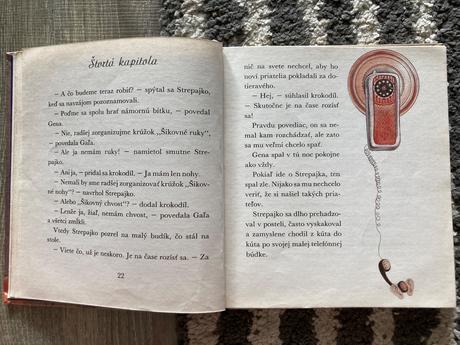 Štvrtá kapitola
— A čo budeme teraz robiť? — spýtal sa Strepajko,
keď sa navzájom pozoznamovali.
— Poďme sa spolu hrať námornú bitku, — povedal
Gena.
— Nie, radšej zorganizujme krúžok „Šikovné ruky“,
— povedala Gaľa.
— Ale ja nemám ruky! — namietol smutne Stre-
pajko.
— Ani ja, — pridal sa krokodíl. — Ja mám len nohy.
— Nemali by sme radšej zorganizovať krúžok „Šikov-
né nohy“? — navrhol Strepajko.
— Alebo „Šikovný chvost“? — dodal krokodíl.
— Lenže ja, žiaľ, nemám chvost, — povedala Gaľa
a všetci zmĺkli.
Vtedy Strepajko pozrel na malý budík, čo stál na
stole.
— Viete čo, už je neskoro. Je na čase rozísť sa. — Za
22
nič na svete nechcel, aby ho
noví priatelia pokladali za do-
tieravého.
— Hej, — súhlasil krokodíl.
— Skutočne je na čase rozísť
sa!
Pravdu povediac, on sa ne-
mal kam rozchádzať, ale zato
sa mu veľmi chcelo spať.
Gena spal v tú noc pokojne
ako vždy.
Pokiaľ ide o Strepajka, ten
spal zle. Nijako sa mu nechcelo
veriť, že si našiel takých pria-
teľov.
Strepajko sa dlho prehadzo-
val v posteli, často vyskakoval
a zamyslene chodil z kúta do
kúta po svojej malej telefónnej
búdke.